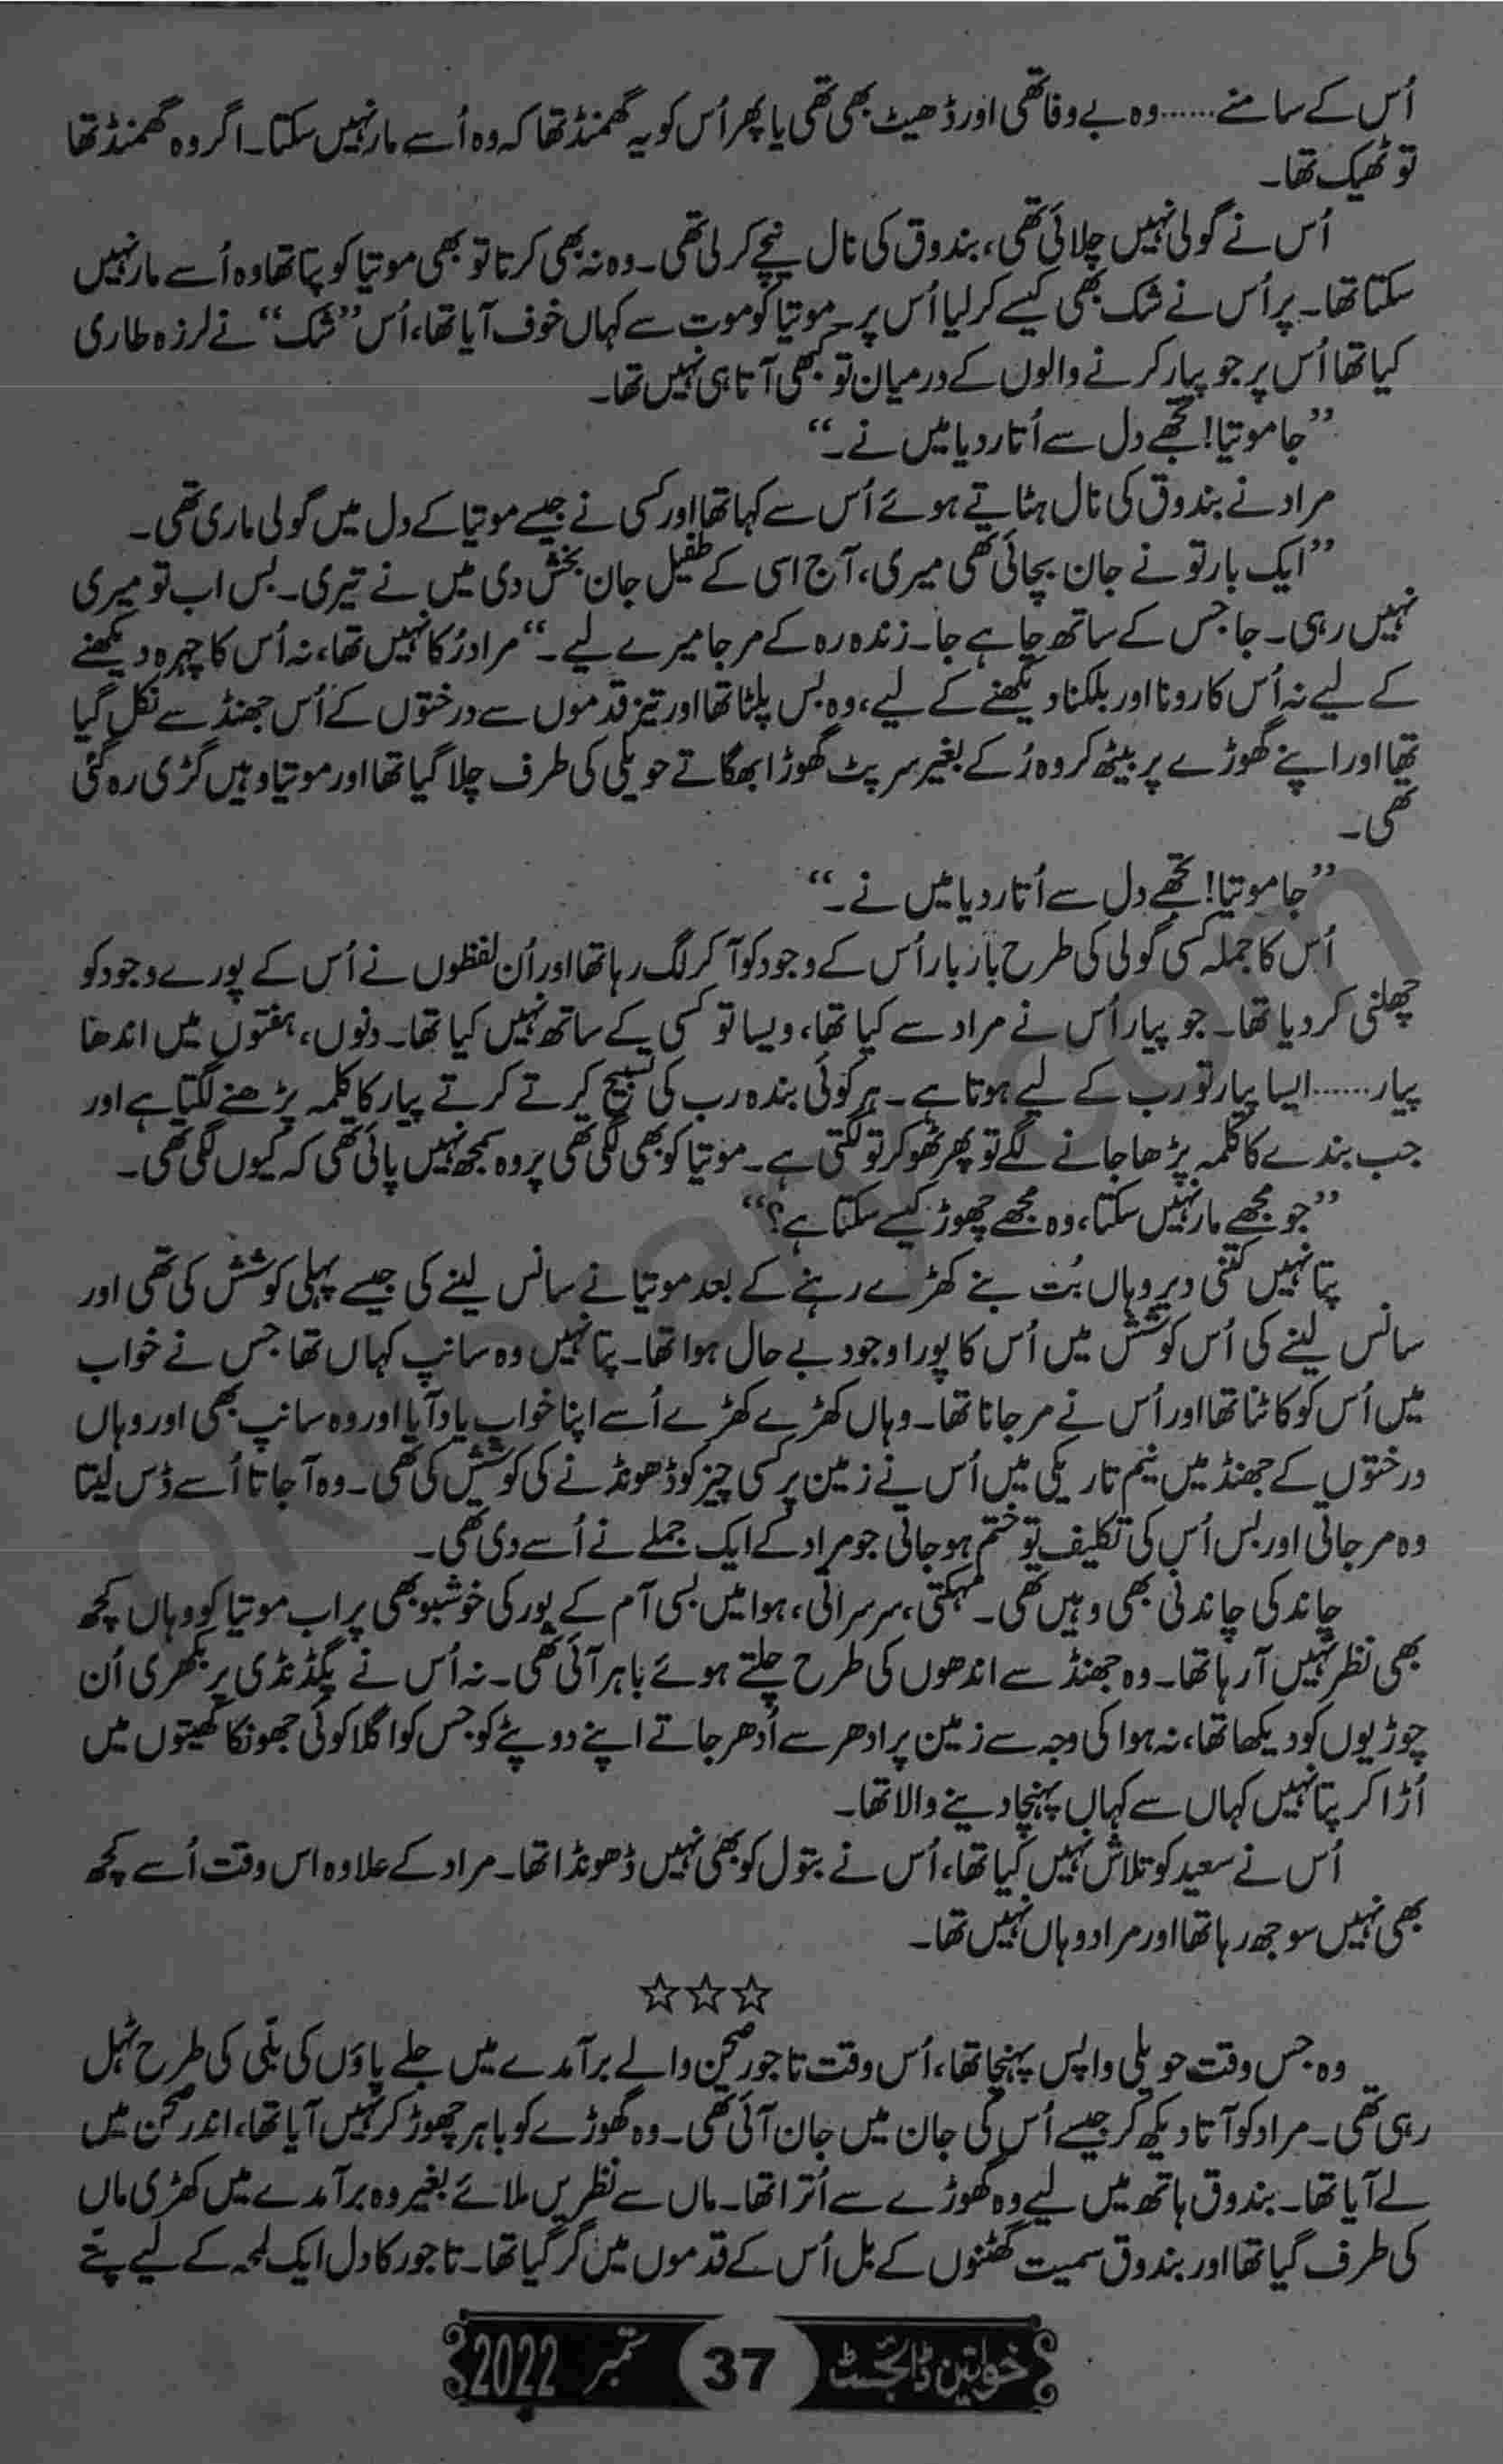 اُس کے سامنے......وہ بے وفا تھی اور ڈھیٹ بھی تھی یا پھر اُس کو یہ گھمنڈ تھا کہ وہ اُسے مار نہیں سکتا۔ اگر وہ گھمنڈ تھا
تو ٹھیک تھا۔
اُس نے گولی نہیں چلائی تھی، بندوق کی نال نیچے کر لی تھی۔ وہ نہ بھی کرتا تو بھی موتیا کو پتا تھا وہ اُسے مار نہیں
سکتا تھا۔ پر اُس نے شک بھی کیسے کر لیا اُس پر۔ موتیا کو موت سے کہاں خوف آیا تھا، اُس ”شک“ نے لرزہ طاری
کیا تھا اُس پر جو پیار کرنے والوں کے درمیان تو کبھی آتا ہی نہیں تھا۔
”جا موتیا! تجھے دل سے اُتار دیا میں نے۔“
مراد نے بندوق کی نال ہٹاتے ہوئے اُس سے کہا تھا اور کسی نے جیسے موتیا کے دل میں گولی ماری تھی۔
”ایک بار تو نے جان بچائی تھی میری، آج اسی کے طفیل جان بخش دی میں نے تیری۔ بس اب تو میری
نہیں رہی۔ جا جس کے ساتھ چاہے جا۔ زندہ رہ کے مر جا میرے لیے۔“ مراد رُکا نہیں تھا، نہ اُس کا چہرہ دیکھنے
کے لیے نہ اُس کا رونا اور بلکنا دیکھنے کے لیے، وہ بس پلٹا تھا اور تیز قدموں سے درختوں کے اُس جھنڈ سے نکل گیا
تھا اور اپنے گھوڑے پر بیٹھ کر وہ رُکے بغیر سرپٹ گھوڑا بھگاتے حویلی کی طرف چلا گیا تھا اور موتیا وہیں گڑی رہ گئی
تھی۔
”جا موتیا! تجھے دل سے اُتار دیا میں نے۔“
اُس کا جملہ کسی گولی کی طرح بار بار اُس کے وجود کو آ کر لگ رہا تھا اور اُن لفظوں نے اُس کے پورے وجود کو
چھلنی کر دیا تھا۔ جو پیار اُس نے مراد سے کیا تھا، ویسا تو کسی کے ساتھ نہیں کیا تھا۔ دنوں، ہفتوں میں اندھا
پیار......ایسا پیار تو رب کے لیے ہوتا ہے۔ ہر کوئی بندہ رب کی تسبیح کرتے کرتے پیار کا کلمہ پڑھنے لگتا ہے اور
جب بندے کا کلمہ پڑھا جانے لگے تو پھر ٹھوکر تو لگتی ہے۔ موتیا کو بھی لگی تھی پر وہ سمجھ نہیں پائی تھی کہ کیوں لگی تھی۔
”جو مجھے مار نہیں سکتا، وہ مجھے چھوڑ کیسے سکتا ہے؟“
پتا نہیں کتنی دیر وہاں بُت بنے کھڑے رہنے کے بعد موتیا نے سانس لینے کی جیسے پہلی کوشش کی تھی اور
سانس لینے کی اُس کوشش میں اُس کا پورا وجود بے حال ہوا تھا۔ پتا نہیں وہ سانپ کہاں تھا جس نے خواب
میں اُس کو کاٹنا تھا اور اُس نے مر جانا تھا۔ وہاں کھڑے کھڑے اُسے اپنا خواب یاد آیا اور وہ سانپ بھی اور وہاں
درختوں کے جھنڈ میں نیم تاریکی میں اُس نے زمین پر کسی چیز کو ڈھونڈنے کی کوشش کی تھی۔ وہ آ جاتا اُسے ڈس لیتا
وہ مر جاتی اور بس اُس کی تکلیف تو ختم ہو جاتی جو مراد کے ایک جملے نے اُسے دی تھی۔
چاند کی چاندنی بھی وہیں تھی۔ مہکتی، سرسراتی، ہوا میں بسی آم کے بور کی خوشبو بھی پر اب موتیا کو وہاں کچھ
بھی نظر نہیں آ رہا تھا۔ وہ جھنڈ سے اندھوں کی طرح چلتے ہوئے باہر آئی تھی۔ نہ اُس نے پگڈنڈی پر بکھری اُن
چوڑیوں کو دیکھا تھا، نہ ہوا کی وجہ سے زمین پر ادھر سے اُدھر جاتے اپنے دوپٹے کو جس کو اگلا کوئی جھونکا کھیتوں میں
اُڑا کر پتا نہیں کہاں سے کہاں پہنچا دینے والا تھا۔
اُس نے سعید کو تلاش نہیں کیا تھا، اُس نے بتول کو بھی نہیں ڈھونڈا تھا۔ مراد کے علاوہ اس وقت اُسے کچھ
بھی نہیں سوجھ رہا تھا اور مراد وہاں نہیں تھا۔
☆☆☆
وہ جس وقت حویلی واپس پہنچا تھا، اُس وقت تاجور صحن والے برآمدے میں جلے پاؤں کی بلّی کی طرح ٹہل
رہی تھی۔ مراد کو آتا دیکھ کر جیسے اُس کی جان میں جان آئی تھی۔ وہ گھوڑے کو باہر چھوڑ کر نہیں آیا تھا، اندر صحن میں
لے آیا تھا۔ بندوق ہاتھ میں لیے وہ گھوڑے سے اُترا تھا۔ ماں سے نظریں ملائے بغیر وہ برآمدے میں کھڑی ماں
کی طرف گیا تھا اور بندوق سمیت گھٹنوں کے بل اُس کے قدموں میں گر گیا تھا۔ تاجور کا دل ایک لمحہ کے لیے پتے
خواتین ڈائجسٹ 37 ستمبر 2022